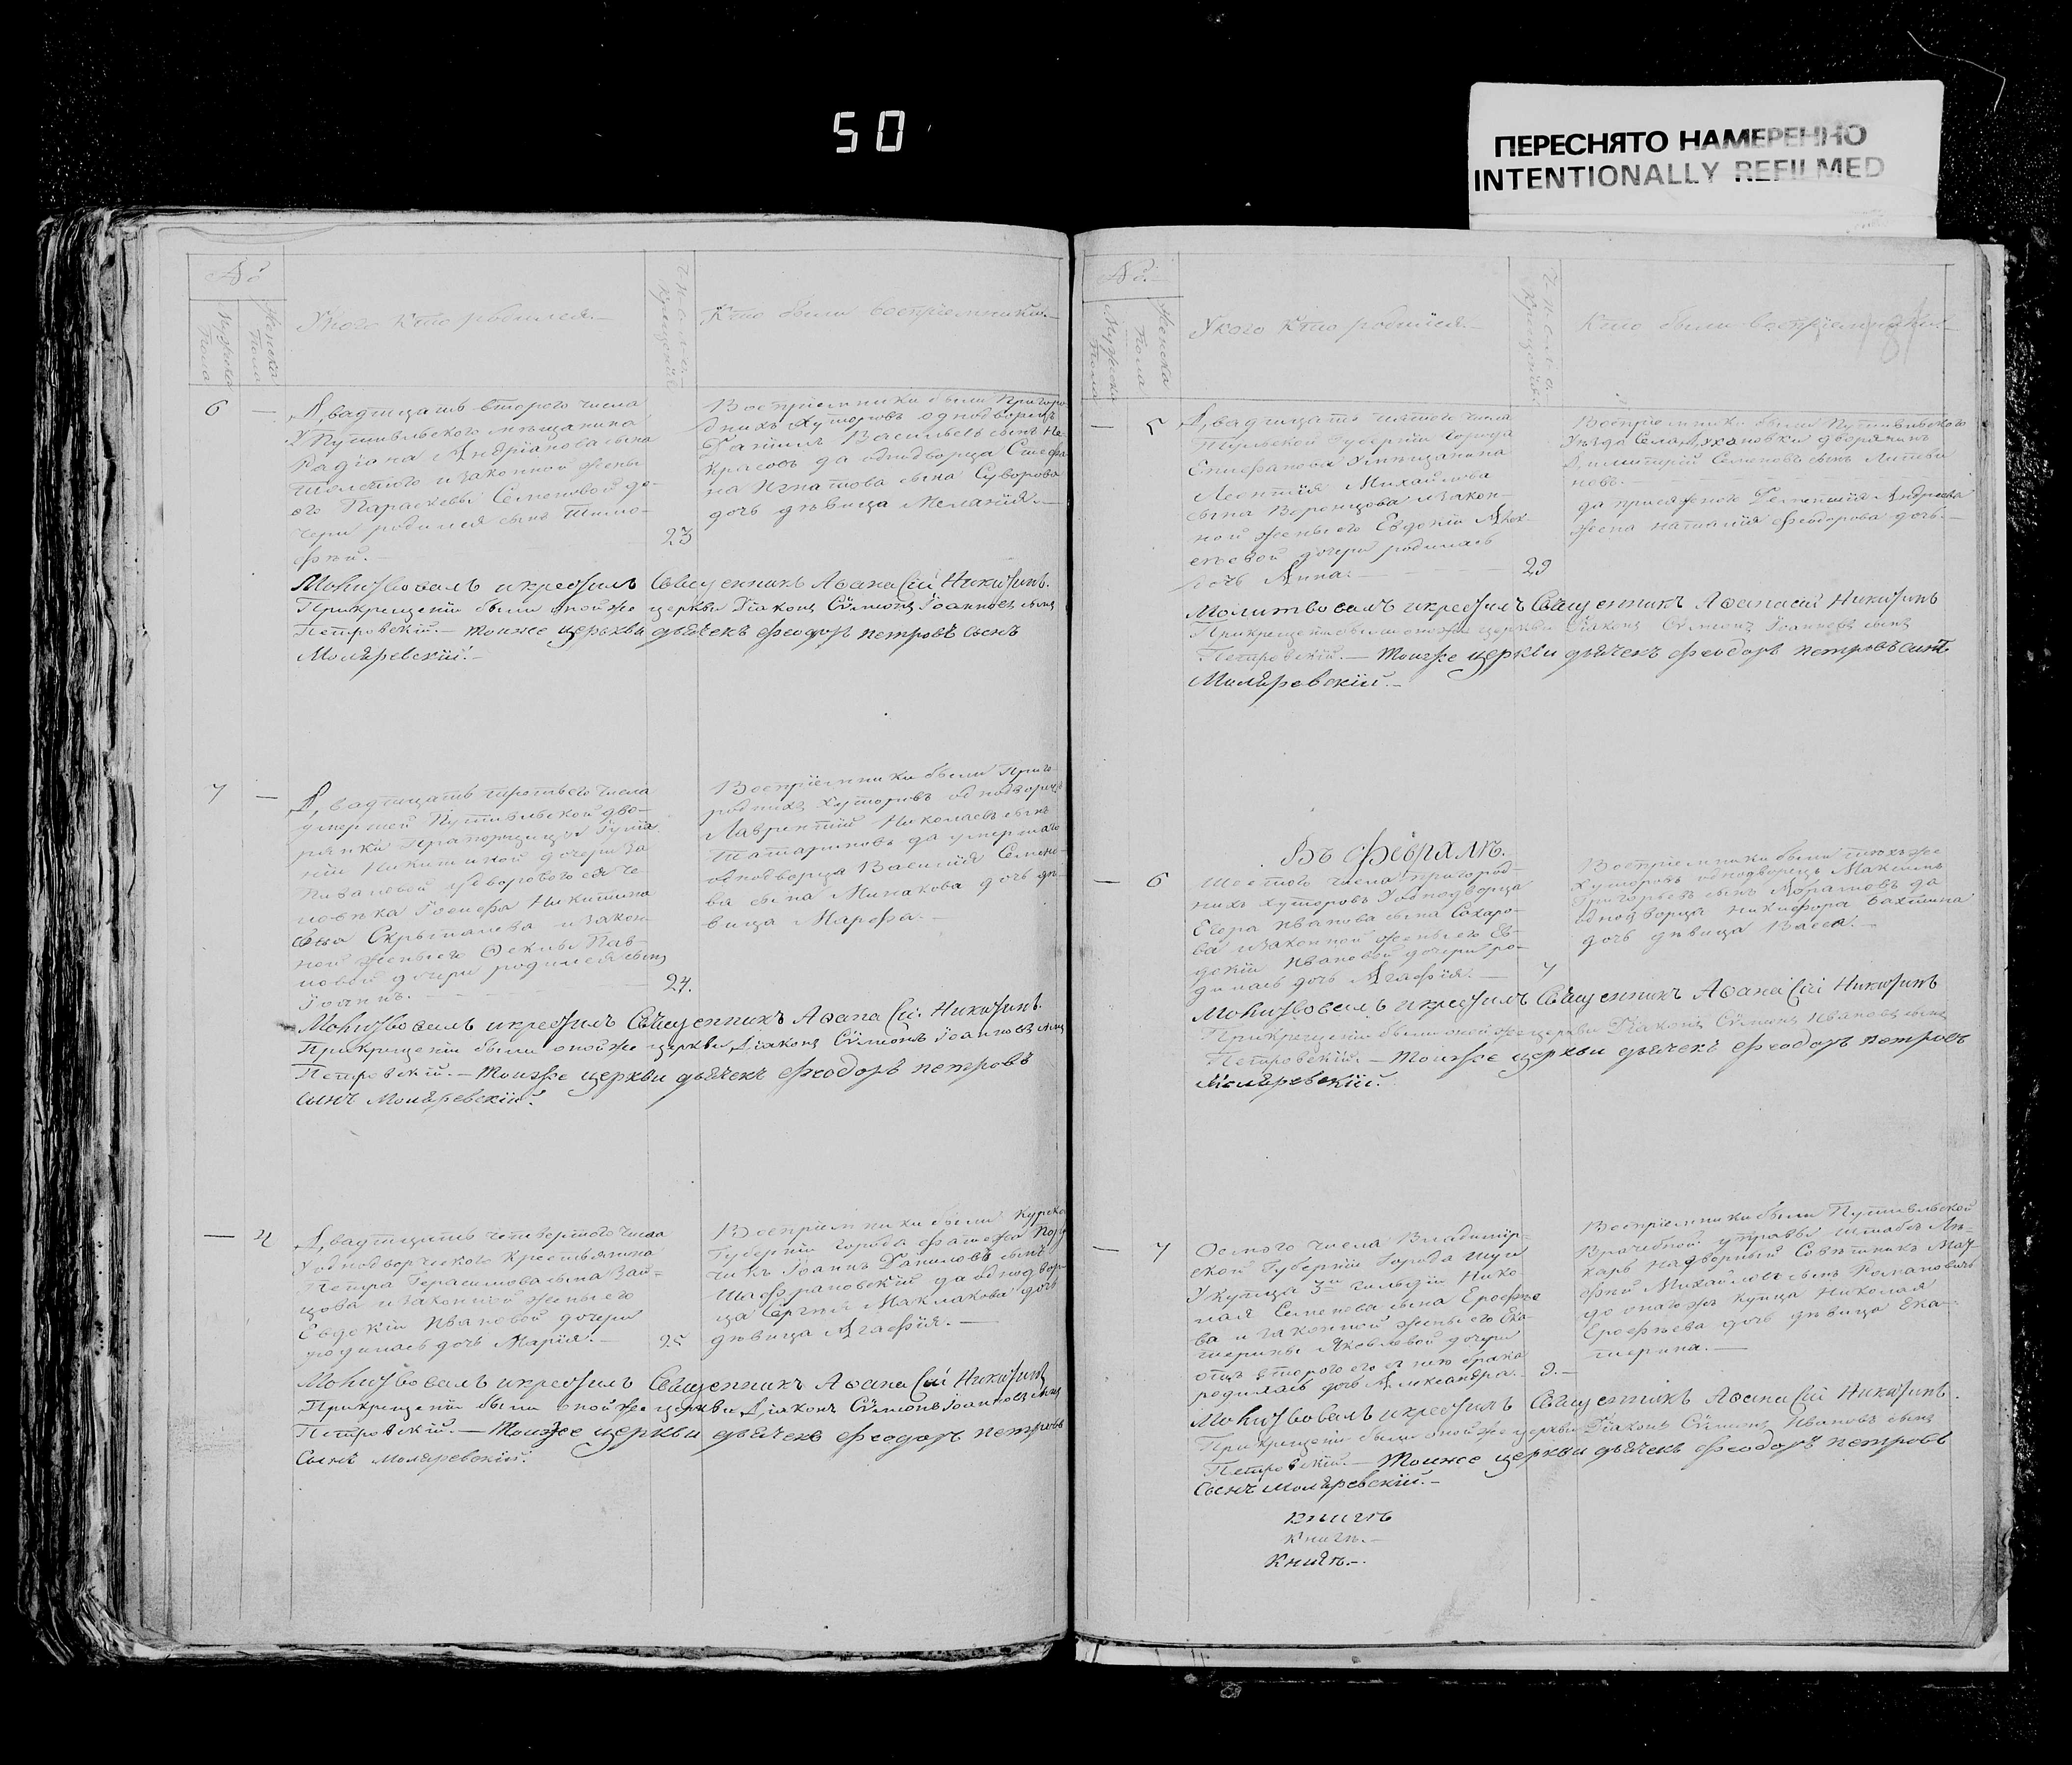 50
ПЕРЕСНЯТО НАМЕРЕННО
INTENTIONALLY REFILMED
№
Мужеска Пола
Женска Пола
У кого кто родился.—
Кто были воспріемники.—
6 —
Двадцать втораго числа
У Путивльского мещанина
Радіона Андріанова сына
и законной жены
его Параскевы Семеновой до-
чери родился сынъ Тимо-
фей.—
23
Воспріемники были Пригоро-
днихъ Хуторовъ однодворецъ
Даніилъ Васильевъ сынъ Не-
красовъ да однодворца Стефа-
на Игнатова сына Суворова
дочь девица Меланія.—
Молитвовалъ и крестилъ Священникъ Аѳанасій Никитинъ.
При крещеніи были оной же церкви Діаконъ Сѵмеонъ Іоанновъ сынъ
Петровскій.— тоиже церкви дьячекъ феодоръ петровъ сынъ
Моляревскій.—
7 —
Двадцать третьего числа
умершей Путивльской дво-
рянки Прапорщицы
Никитиной дочери
у дворового ея че-
ловека Іосифа Никитина
сына и закон-
ной жены его Ѳеклы Пав-
ловой дочери родился сынъ
Іоаннъ.—
24.
Воспріемники были Приго-
роднихъ хуторовъ однодворецъ
Лаврентій Николаевъ сынъ
Татариновъ да умершаго
однодворца Василія Семено-
ва сына Минакова дочь де-
вица Марфа.—
Молитвовалъ и крестилъ Священникъ Аѳанасій Никитинъ.
При крещеніи были оной же церкви Діаконъ Сѵмеонъ Іоанновъ сынъ
Петровскій.— Тоиже церкви дьячекъ феодоръ петровъ
сынъ Моляревскій.
— 4
Двадцать четвертого числа
У однодворческого крестьянина
Петра Герасимова сына Зай-
цова и законной жены его
Евдокіи Ивановой дочери
родилась дочь Марія.—
25
Воспріемники были Курской
Губерніи города фатежа
Іоаннъ Даниловъ сынъ
Шафрановскій да однодвор-
ца Сергея Маклакова дочь
девица Агафія.—
Молитвовалъ и крестилъ Священникъ Аѳанасій Никитинъ
При крещеніи были оной же церкви Діаконъ Сѵмеонъ Іоанновъ сынъ
Петровскій.— Тоиже церкви дьячекъ феодоръ петровъ
Сынъ моляревскій.
№
Мужеска Пола
Женска Пола
У кого кто родился.—
Кто были воспріемники.—
— 5
Двадцать пятого числа
Тульской Губерніи Города
Епифанова У мещанина
Леонтія Михайлова
сына Воронцова и закон-
ной жены его Евдокіи Алек-
сеевой дочери родилась
дочь Анна.
29
Воспріемники были Путивльского
Уезда Села дворянинъ
Димитрій Семеновъ сынъ Литви-
новъ.
да Андреева
жена Наталія феодорова дочь.—
Молитвовалъ и крестилъ Священникъ Аѳанасій Никитинъ
При крещеніи были оной же церкви Діаконъ Сѵмеонъ Іоанновъ сынъ
Петровскій.— Тоиже церкви дьячекъ феодоръ петровъ сынъ
Моляревскій.—
Въ февралѣ.
— 6
Шестого числа пригород-
нихъ хуторовъ У однодворца
Егора Иванова сына Сахаро-
ва и законной жены его Ев-
докіи Ивановой дочери ро-
дилась дочь Агафія.—
7
Воспріемники были техъ же
Хуторовъ однодворецъ Максимъ
Григорьевъ сынъ Абрамовъ да
однодворца Никифора Бахтина
дочь девица Васса.—
Молитвовалъ и крестилъ Священникъ Аѳанасій Никитинъ
При крещеніи были оной же церкви Діаконъ Сѵмеонъ Ивановъ сынъ
Петровскій.— Тоиже церкви дьячекъ феодоръ петровъ
Моляревскій.
— 7
Осмого числа Владимір-
ской Губерніи Города Шуи
У купца 3й гильдіи Нико-
лая Семенова сына Ерофее-
ва и законной жены его Ека-
терины Яковлевой дочери
отъ второго его съ нею брака
родилась дочь Александра.
9.—
Воспріемники были Путивльской
Врачебной управы штабъ Ле-
карь Надворный Советникъ Мат-
фей Михайловъ сынъ Романовичъ
да онаго жъ купца Николая
Ерофеева дочь девица Ека-
терина.—
Молитвовалъ и крестилъ Священникъ Аѳанасій Никитинъ.
При крещеніи были оной же церкви Діаконъ Сѵмеонъ Ивановъ сынъ
Петровскій.— Тоиже церкви дьячекъ феодоръ петровъ
Сынъ моляревскій.—
Книгъ.—
Книгъ.—